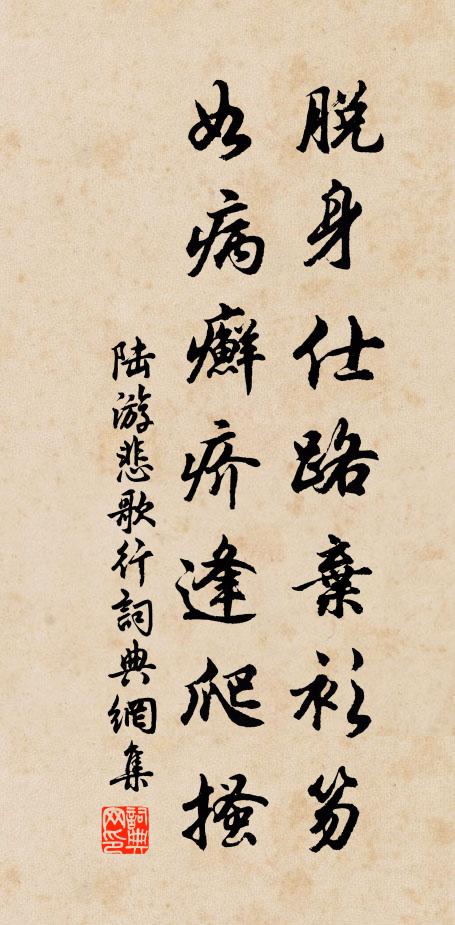 脱身仕路棄衫笏
如病癬疥逢爬搔
陆游悲歌行詞典網集
詞典网印